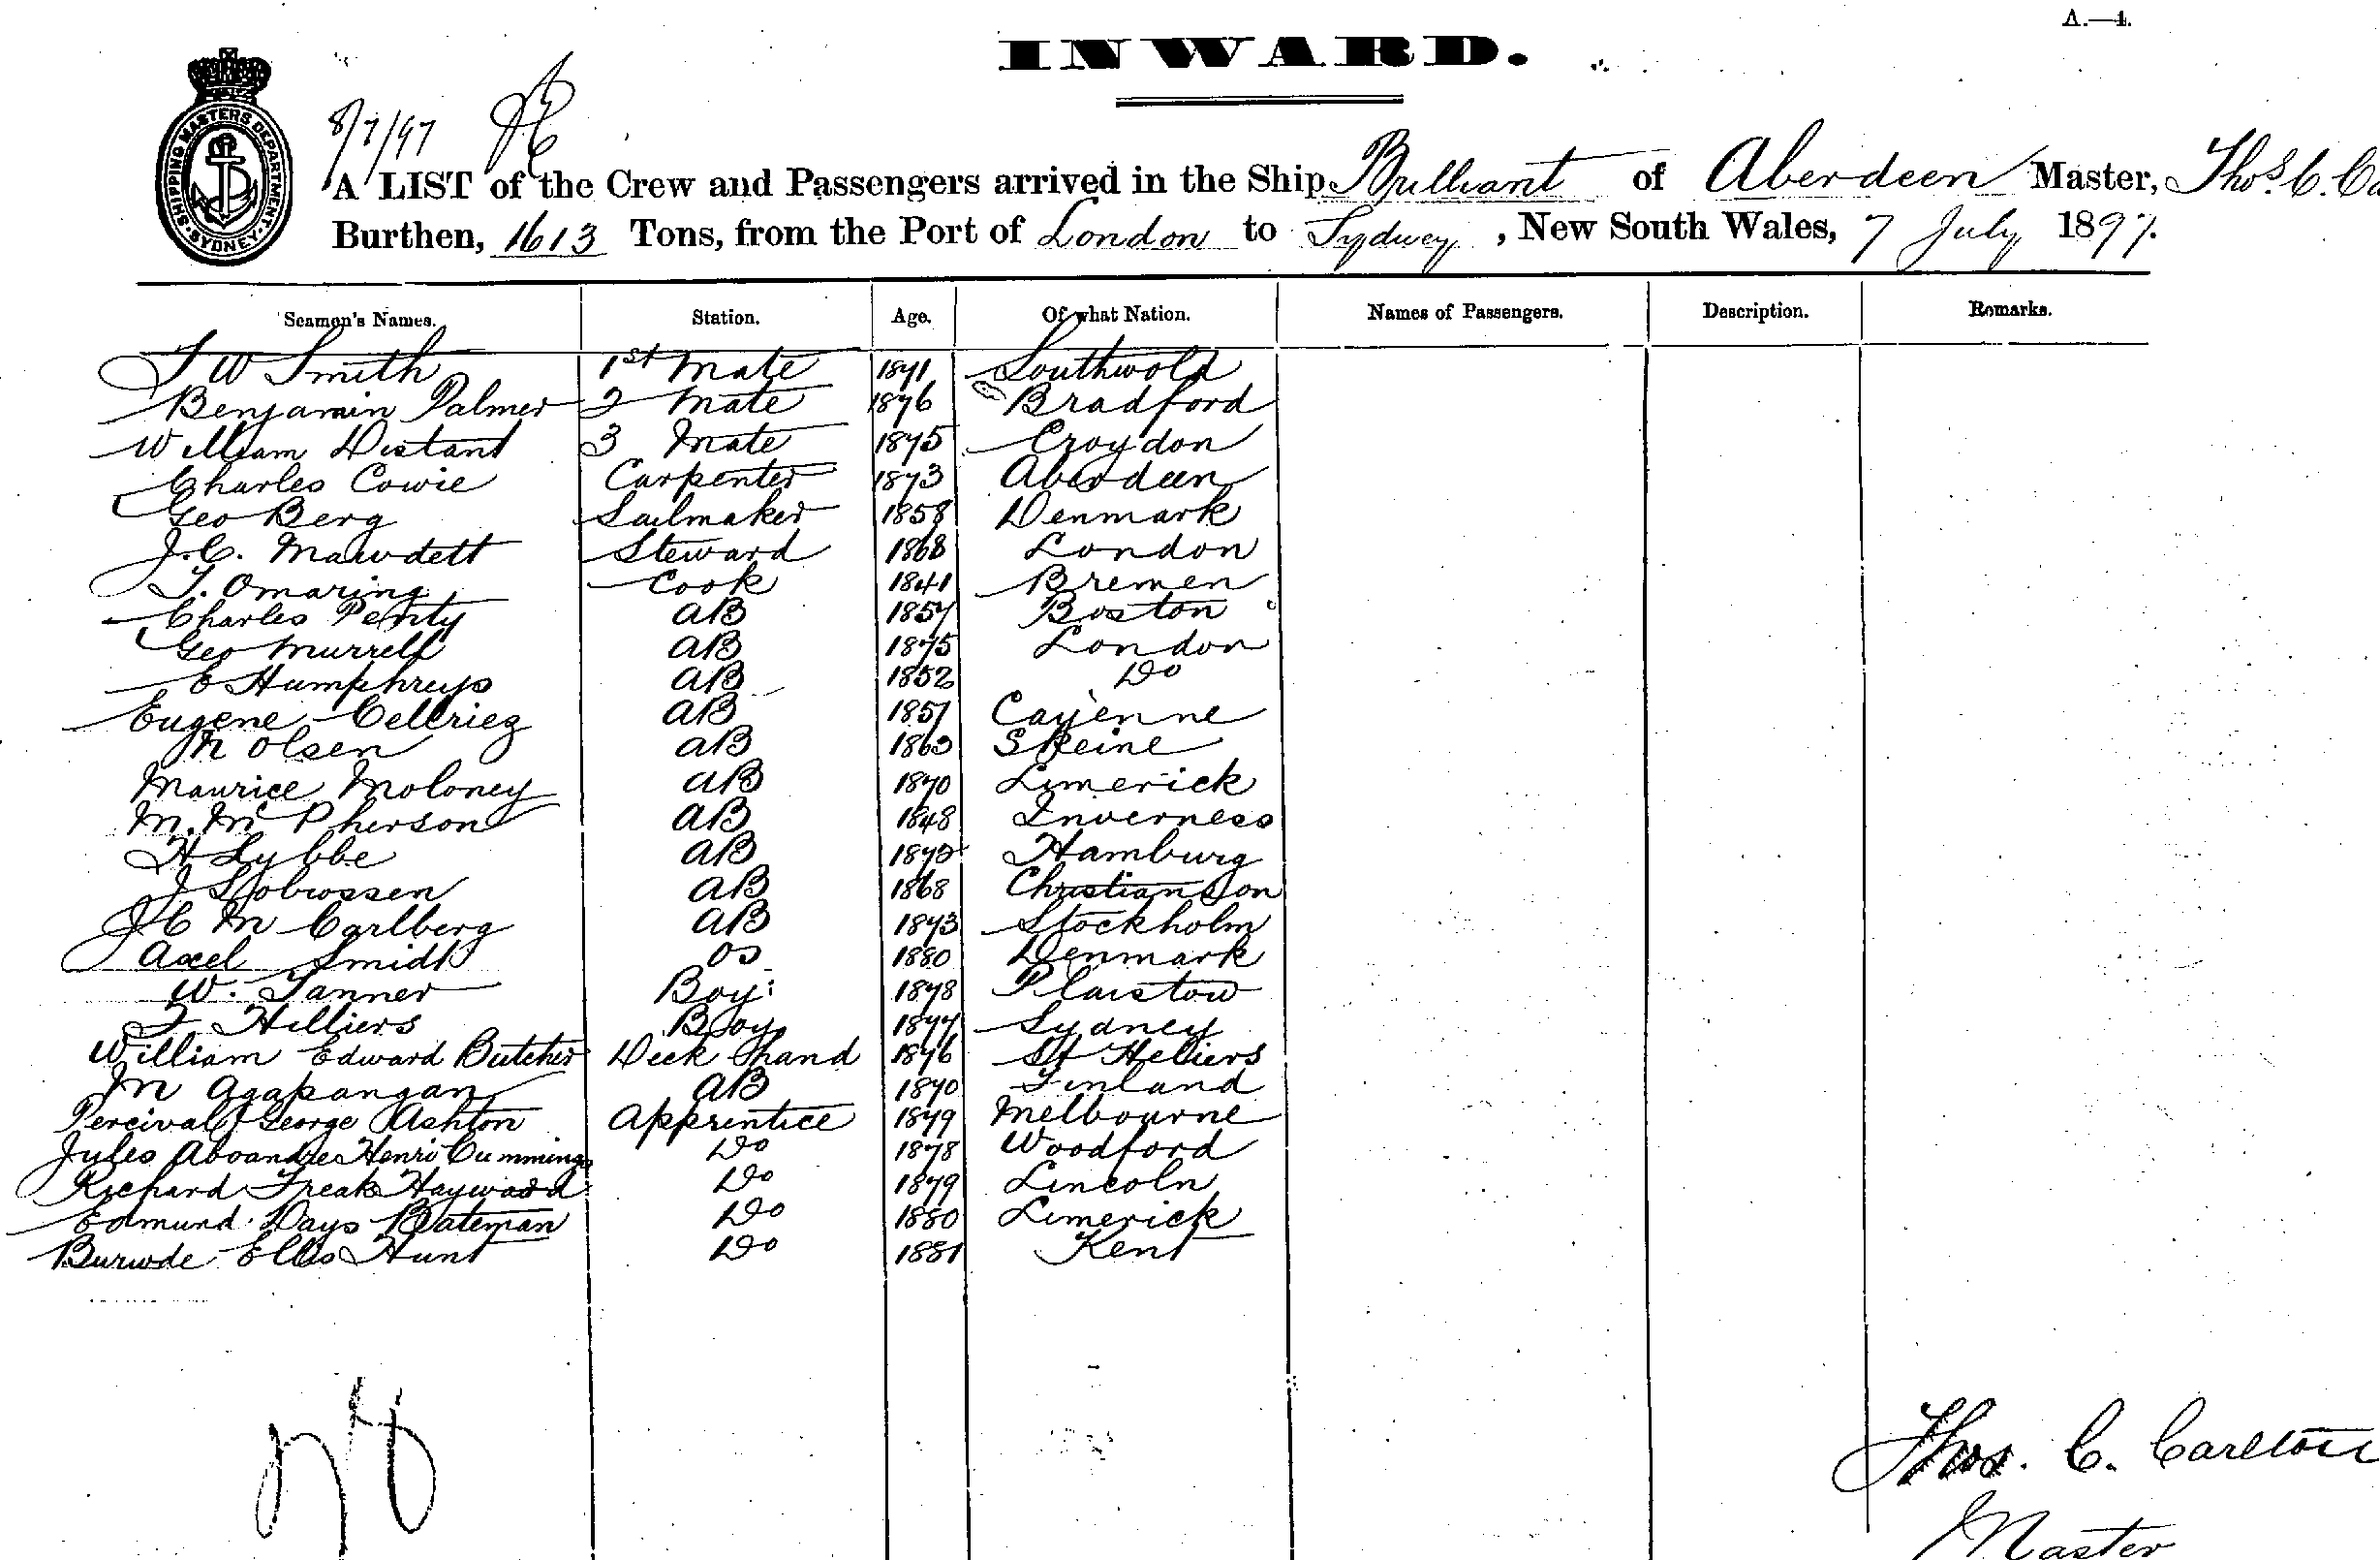 A.—4.
INWARD.
SHIPPING MASTERS DEPARTMENT SYDNEY
8/7/97
A LIST of the Crew and Passengers arrived in the Ship Brilliant of Aberdeen Master, Thos. C. Ca
Burthen, 1613 Tons, from the Port of London to Sydney, New South Wales, 7 July 1897.
Seamen's Names. Station. Age. Of what Nation. Names of Passengers. Description. Remarks.
W Smith 1st Mate 1871 Southwold
Benjamin Palmer 2 Mate 1876 Bradford
William Distant 3 Mate 1875 Croydon
Charles Cowie Carpenter 1873 Aberdeen
Geo Berg Sailmaker 1858 Denmark
J.C. Mawdett Steward 1868 London
Omaring Cook 1841 Bremen
Charles Penty AB 1857 Boston
Geo Murrell AB 1875 London
E Humphreys AB 1852 Do
Eugene AB 1857 Cayenne
Olsen AB 1863
Maurice Moloney AB 1870 Limerick
M. Mc Pherson AB 1848 Inverness
H Lybbe AB Hamburg
J AB 1868 Christianson
J C M Carlberg AB 1873 Stockholm
Axel Smidt OS 1880 Denmark
W. Tanner Boy 1878 Plaistow
Hilliers Boy 1877 Sydney
William Edward Butcher Deck hand 1876 St Helliers
M Agapangan AB 1870 Finland
Percival George Ashton Apprentice 1879 Melbourne
Jules Henri Cummings Do 1878 Woodford
Richard Freak Hayward Do 1879 Lincoln
Edmund Days Bateman Do 1880 Limerick
Ellis Hunt Do 1881 Kent
Thos. C. Carlton
Master